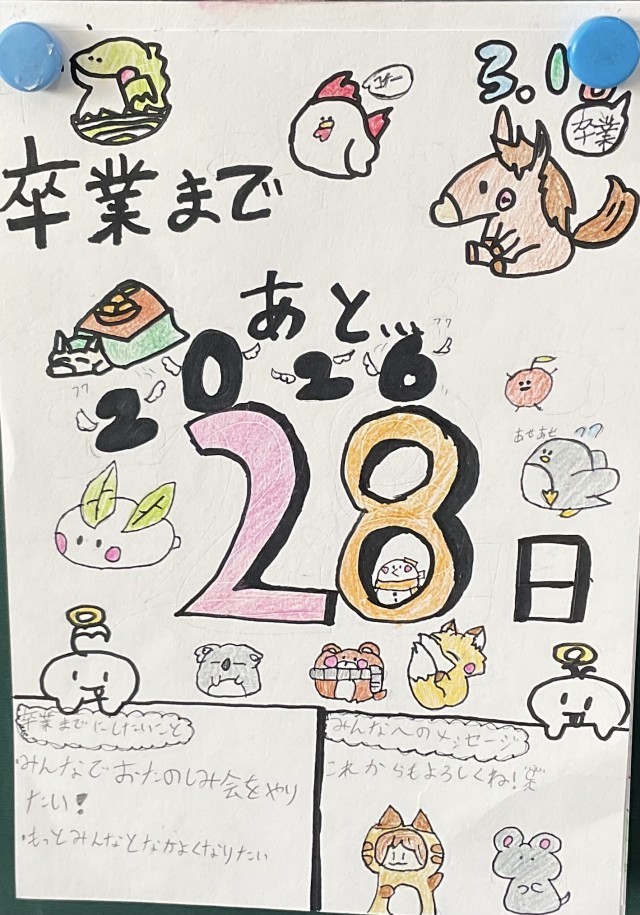 3.1
卒業
卒業まで
あと...
2026
28
日
あせあせ
卒業までにしたいこと
・みんなでおたのしみ会をやり
たい!
・もっとみんなとなかよくなりたい
みんなへのメッセージ
これからもよろしくね!